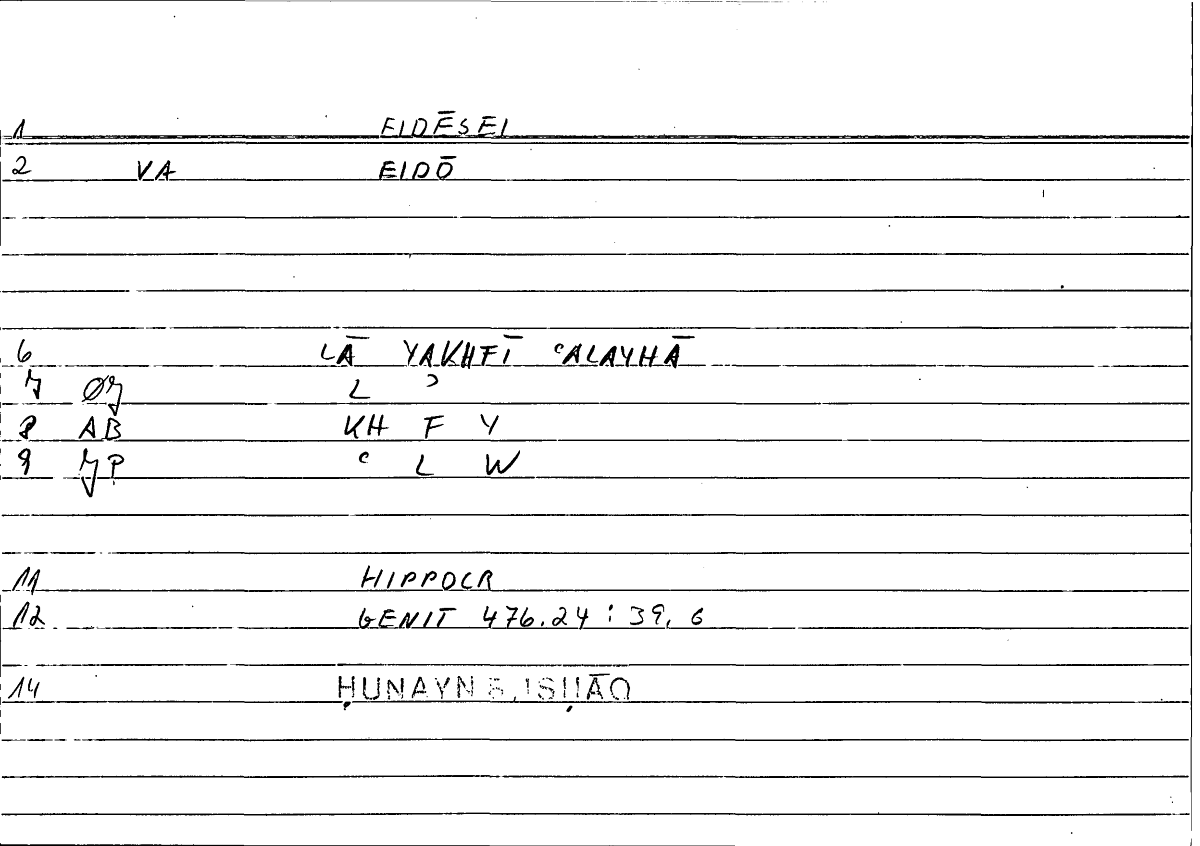 1 EIDĒSEI
2 VA EIDŌ
6 LĀ YAKHFĪ ʿALAYHĀ
7 ØJ L ʾ
8 AB KH F Y
9 JP ʿ L W
11 HIPPOCR
12 GENIT 476.24 : 39, 6
14 ḤUNAYN B. ISḤĀQ